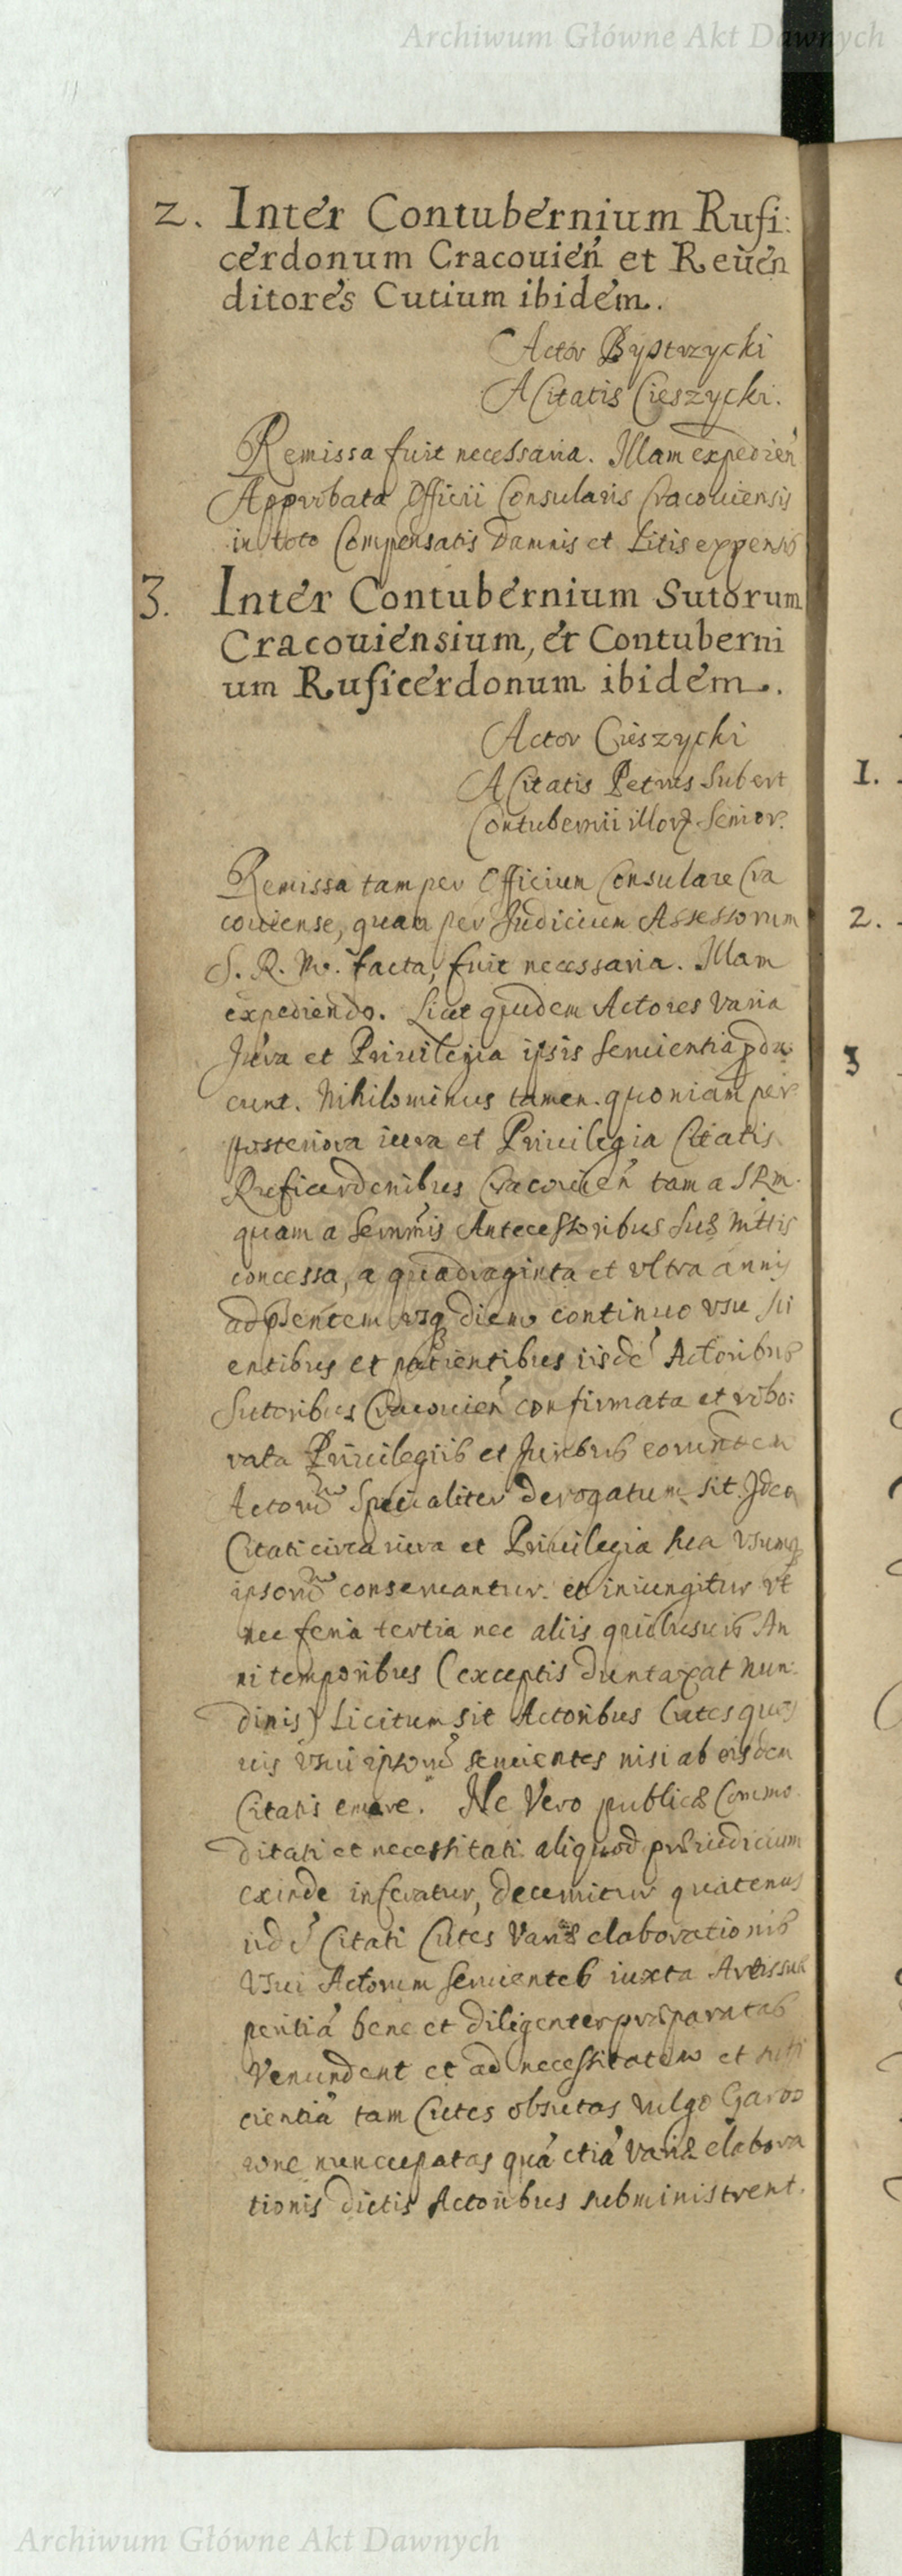 Archiwum Główne Akt Dawnych
2. Inter Contubernium Rufi:
cerdonum Cracouień et Reuen
ditores Cutium ibidem.
Actor Bystrzycki
A Citatis Cieszycki.
Remissa fuit necessaria. Illam expedień
Approbata Officii Consularis Cracouiensis
in toto Compensatis Damnis et Litis expensis
3. Inter Contubernium Sutorum
Cracouiensium, et Contuberni
um Ruficerdonum ibidem.
Actor Cieszycki
A Citatis Petrus Subert
Contubernii illorz Senior.
Remissa tam per Officium Consulare Cra
couiense, quam per Judicium Assessorum
S. R. M. facta, fuit necessaria. Illam
expediendo. Licet quidem Actores varia
Jura et Priuilegia ipsis seruientia produ:
cunt. Nihilominus tamen quoniam per
posteriora iura et Priuilegia Citatis
Ruficerdonibus Cracouień tam a SRM.
quam a Sermis Antecessoribus Suae Mttis
concessa, a quadraginta et vltra annis
ad psentem vsq diem continuo vsu sci
entibus et patientibus iisdē Actoribus
Sutoribus Cracouień confirmata et robo:
rata Priuilegiis et Juribus eorundem
Actorū Specialiter derogatum sit. Ideo
Citati circa iura et Priuilegia sua vsumq
ipsorū conseruantur. et iniungitur vt
nec feria tertia nec aliis quibusuis An
ni temporibus (exceptis duntaxat Nun:
dinis) Licitum sit Actoribus Cutes quas
uis vsui ipsorū seruientes nisi ab eisdem
Citatis emere. Ne Vero publicae Commo
ditati et necessitati aliquod praeiudicium
exinde inferatur, decernitur quatenus
iidē Citati Cutes Variae elaborationis
Vsui Actorum seruientes iuxta Artis suae
peritiā bene et diligenter praeparatas
Venundent et ad necessitatem et suffi
cientiā tam Cutes obsutas vulgo Garbo
wne nuncupatas quā etiā Variae elabora
tionis dictis Actoribus subministrent.
1.
2.
3
Archiwum Główne Akt Dawnych